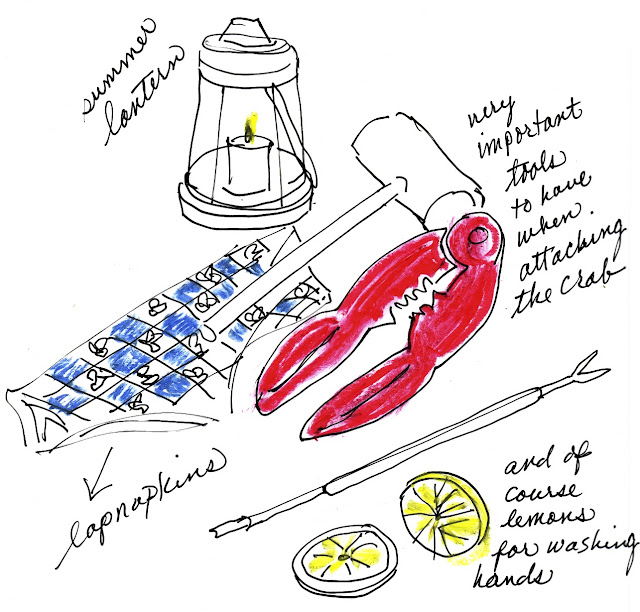 summer
lantern
very
important
tools
to have
when
attacking
the crab
lapnapkins
and of
course
lemons
for washing
hands